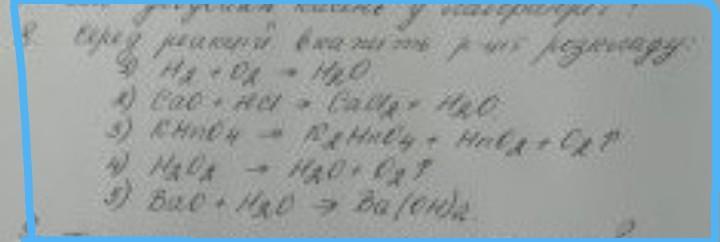 8. Серед реакцій вкажіть р-ції розкладу:
1) H2 + O2 → H2O
2) CaO + HCl → CaCl2 + H2O
3) KMnO4 → K2MnO4 + MnO2 + O2↑
4) H2O2 → H2O + O2↑
5) BaO + H2O → Ba(OH)2